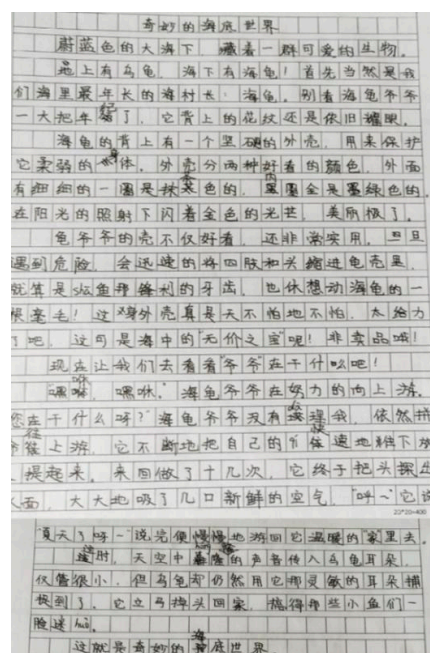 奇妙的海底世界
蔚蓝色的大海下，藏着一群可爱的生物。
地上有乌龟，海下有海龟！首先当然是我
们海里最年长的海村长：海龟。别看海龟爷爷
一大把年纪了，它背上的花纹还是依旧耀眼。
海龟的背上有一个坚硬的外壳，用来保护
它柔弱的身体。外壳分两种好看的颜色，外面
有细细的一圈是茶色的，内圈全是墨绿色的。
在阳光的照射下闪着金色的光芒，美丽极了。
龟爷爷的壳不仅好看，还非常实用。一旦
遇到危险，会迅速的将四肢和头缩进龟壳里，
就算是sha鱼那锋利的牙齿，也休想动海龟的一
根毫毛！这身外壳真是天不怕地不怕，太给力
了吧，这可是海中的"无价之宝"呢！非卖品哦！
现在让我们去看看"爷爷"在干什么吧！
"嘿咻，嘿咻。"海龟爷爷在努力的向上游。
您在干什么呀？"海龟爷爷没有理我，依然拼
往上游。它不断地把自己的身体速地下
提起来。来回做了十几次，它终于把头探出
水面，大大地吸了几口新鲜的空气，"呼~"它说
20*20=400
"夏天了呀~"说完便慢慢地游回它温暖的"家"里去。
这时，天空中的声音传入乌龟耳朵，
仅管很小，但乌龟却仍然用它那灵敏的耳朵捕
捉到了。它立马掉头回家，搞得那些小鱼们一
脸迷huò。
这就是奇妙的海底世界